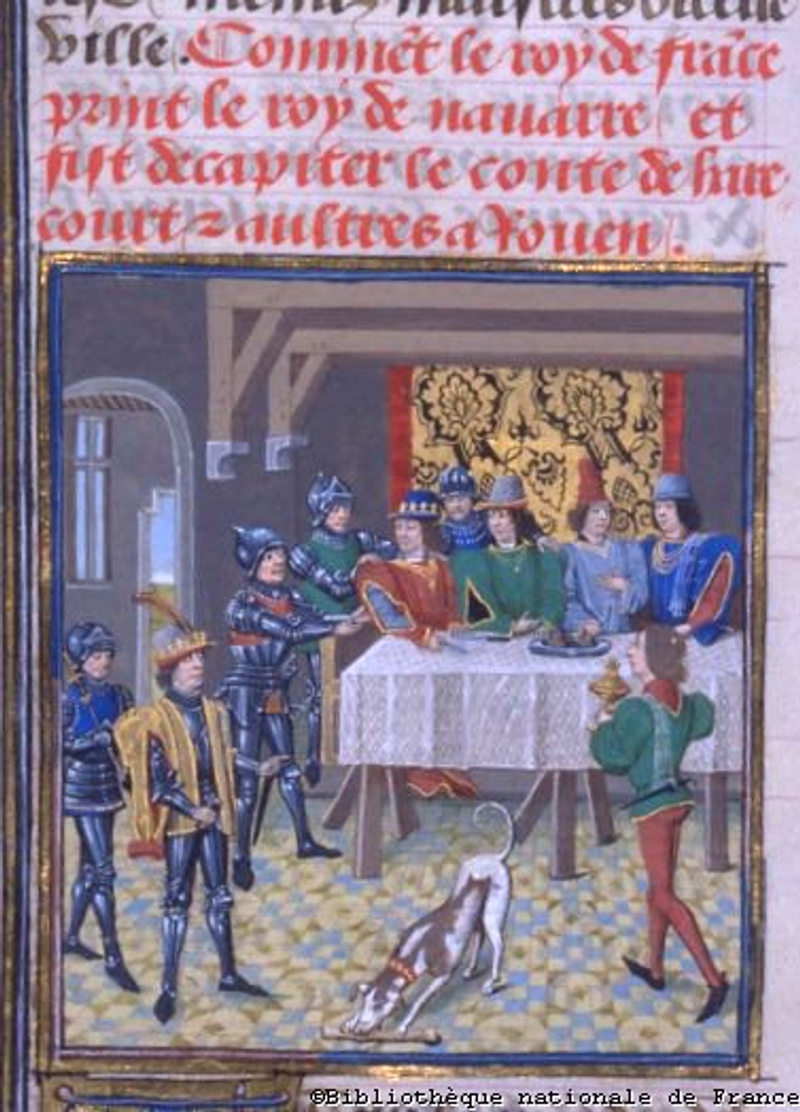 ville. Comme͂t le roy de fra͂ce
print le roy de nauarre et
fist decapiter le conte de hare
court ⁊ aultres a Rouen.
©Bibliothèque nationale de France